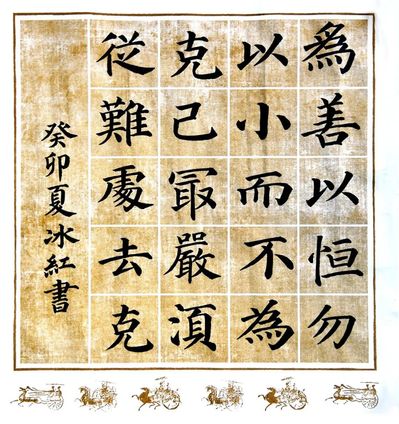 爲善以恒勿
以小而不為
克己冣嚴湏
從難處去克
癸卯夏冰紅書